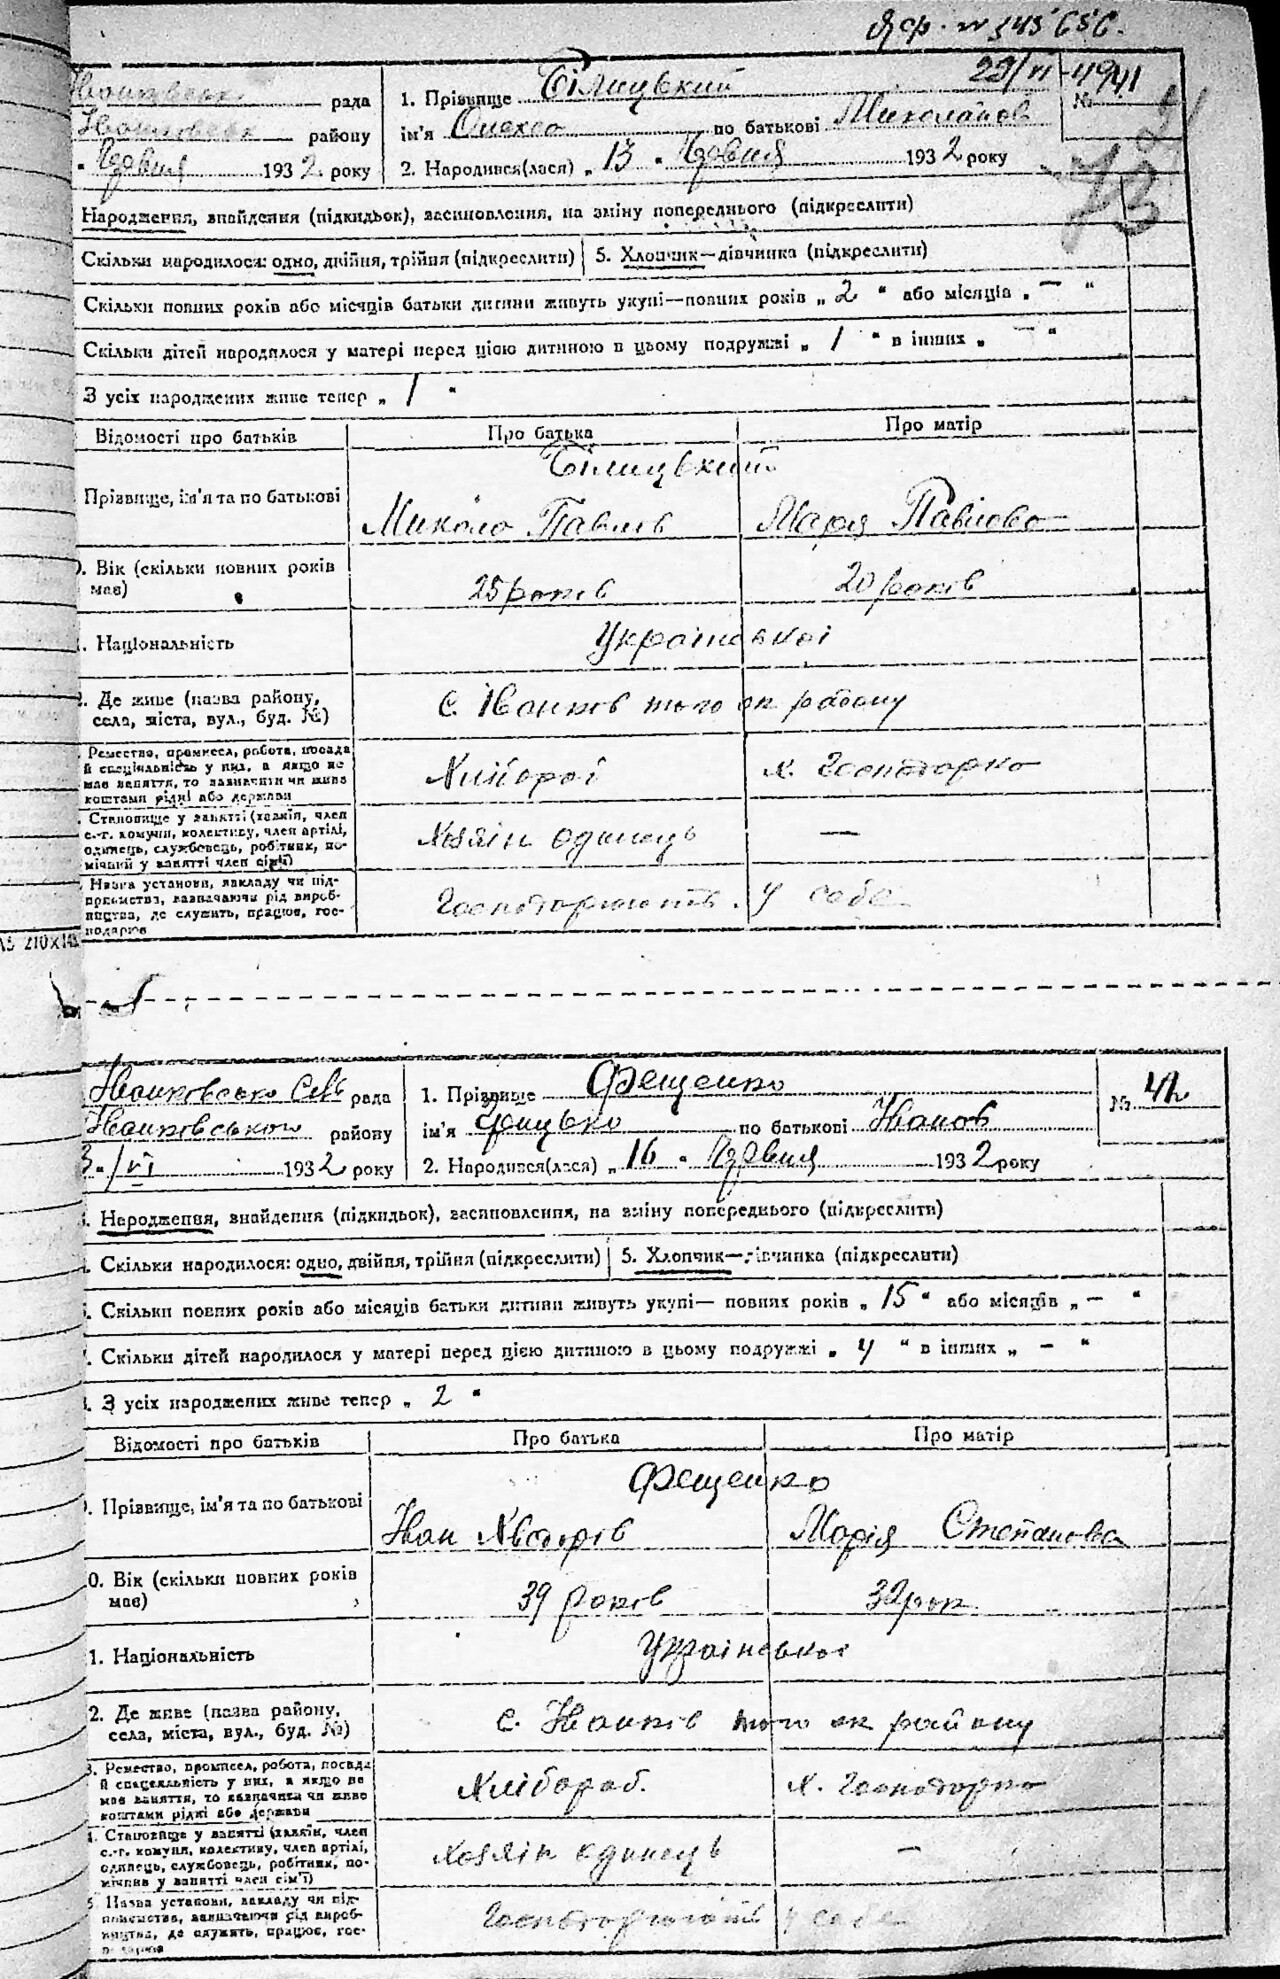 № 343656.
23/VI-1941
Іванківськ рада
Іванківськ району
" Червня 1932 року
1. Прізвище Білицький
ім'я Олекса по батькові Миколайов
2. Народився(лася) „ 13 " Червня 1932 року
№
73
Народження, знайдення (підкидьок), засиновлення, на зміну попереднього (підкреслити)
Скільки народилося: одно, двійня, трійня (підкреслити) 5. Хлопчик—дівчинка (підкреслити)
Скільки повних років або місяців батьки дитини живуть укупі—повних років „ 2 " або місяців „ — "
Скільки дітей народилося у матері перед цією дитиною в цьому подружжі „ 1 " в інших „ — "
З усіх народжених живе тепер „ 1 "
Відомості про батьків Про батька Про матір
Білицький
Прізвище, ім'я та по батькові Миколо Павлів Марія Павлова
Вік (скільки повних років має) 25 років 20 років
Національність Української
Де живе (назва району, села, міста, вул., буд. №) с. Іванків того ж району
Ремество, промисел, робота, посада
й спеціяльність у них, а якщо не
має заняття, то зазначити чи живе
коштами рідні або держави
Хлібороб х. Господарко
Становище у занятті (хазяїн, член
с.-г. комуни, колективу, член артілі,
одинець, службовець, робітник, по-
мічний у занятті член сім'ї)
Хозяін одинець —
Назва установи, закладу чи під-
приємства, зазначаючи рід вироб-
ництва, де служить, працює, гос-
подарює
Господорюють у себе
А5 210×148
Іванковсько Сель рада
Іванківського району
3./VI 1932 року
1. Прізвище Фещенко
ім'я Грицько по батькові Іванов
2. Народився(лася) „ 16 " Червня 1932 року
№ 42
Народження, знайдення (підкидьок), засиновлення, на зміну попереднього (підкреслити)
Скільки народилося: одно, двійня, трійня (підкреслити) 5. Хлопчик—дівчинка (підкреслити)
Скільки повних років або місяців батьки дитини живуть укупі— повних років „ 15 " або місяців „ — "
Скільки дітей народилося у матері перед цією дитиною в цьому подружжі „ 4 " в інших „ — "
З усіх народжених живе тепер „ 2 "
Відомості про батьків Про батька Про матір
Фещенко
Прізвище, ім'я та по батькові Іван Хведорів Марія Степанова
0. Вік (скільки повних років має) 39 років 32 рок
1. Національність Української
2. Де живе (назва району, села, міста, вул., буд. №) с. Іванків того ж району
3. Ремество, промисел, робота, посада
й спеціяльність у них, а якщо не
має заняття, то зазначити чи живе
коштами рідні або держави
Хлібороб. х. Господарко
4. Становище у занятті (хазяїн, член
с.-г. комуни, колективу, член артілі,
одинець, службовець, робітник, по-
мічник у занятті член сім'ї)
Хозяін одинець —
5. Назва установи, закладу чи під-
приємства, зазначаючи рід вироб-
ництва, де служить, працює, гос-
подарює
Господорюють у себе